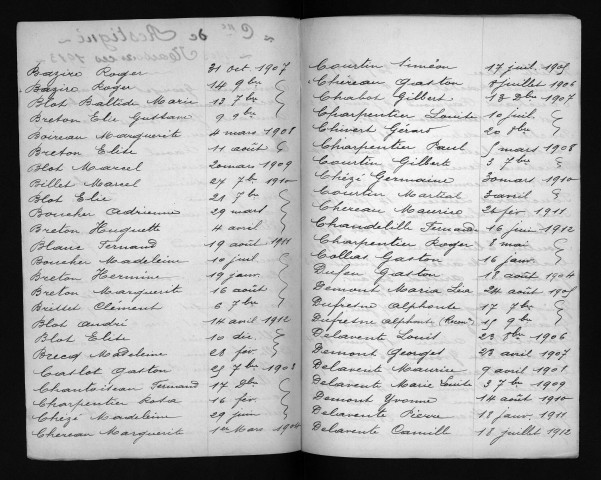 Baziro Roger 31 oct 1907
Baziro Roger 14 9bre
Blot Baltide Marie 13 7bre
Breton Elie Gustave 9 9bre
Boireau Marguerite 4 mars 1908
Breton Elise 11 août
Blot Marcel 20 mars 1909
Billet Marcel 27 7b 1910
Blot Elie 21 7b
Boucher Adrienne 29 mars
Breton Huguette 4 avril
Blaive Fernand 19 août 1911
Boucher Madeleine 10 juil
Breton Hermine 19 janv.
Breton Marguerit 16 août
Brisset Clément 6 7bre
Blot André 14 avril 1912
Blot Elise 10 déc.
Brecq Madeleine 23 fév.
Catlot Gaston 25 7b 1903
Chantoiseau Fernand 17 8bre
Charpentier Rosa 16 fév.
Chézé Madeleine 29 juin
Chereau Marguerit 1er Mars 1904
Courtin Siméon 17 juil. 1905
Chéreau Gaston 8 juillet 1906
Chabot Gilbert 13 8bre 1907
Charpentier Louise 10 juil.
Chivert Gérard 20 8bre
Charpentier Paul 5 mars 1908
Courtin Gilbert 3 7bre
Chézé Germaine 30 mars 1910
Courtin Martial 3 avril
Chereau Maurice 24 fév. 1911
Chandelille Fernand 16 juin 1912
Charpentier Roger 8 mai
Collas Gaston 16 janv.
Dufeu Gaston 18 août 1904
Demont Maria Léa 24 août 1905
Dufresne Alphonse 17 7bre
Dufresne Alphonse 11 9bre
Delavente Louis 23 8bre 1906
Demont Georges 23 avril 1907
Delavente Maurice 9 avril 1908
Delavente Marie Louise 3 7bre 1909
Demont Yvonne 14 août 1910
Delavente Pierre 18 janv. 1911
Delavente Camille 18 juillet 1912